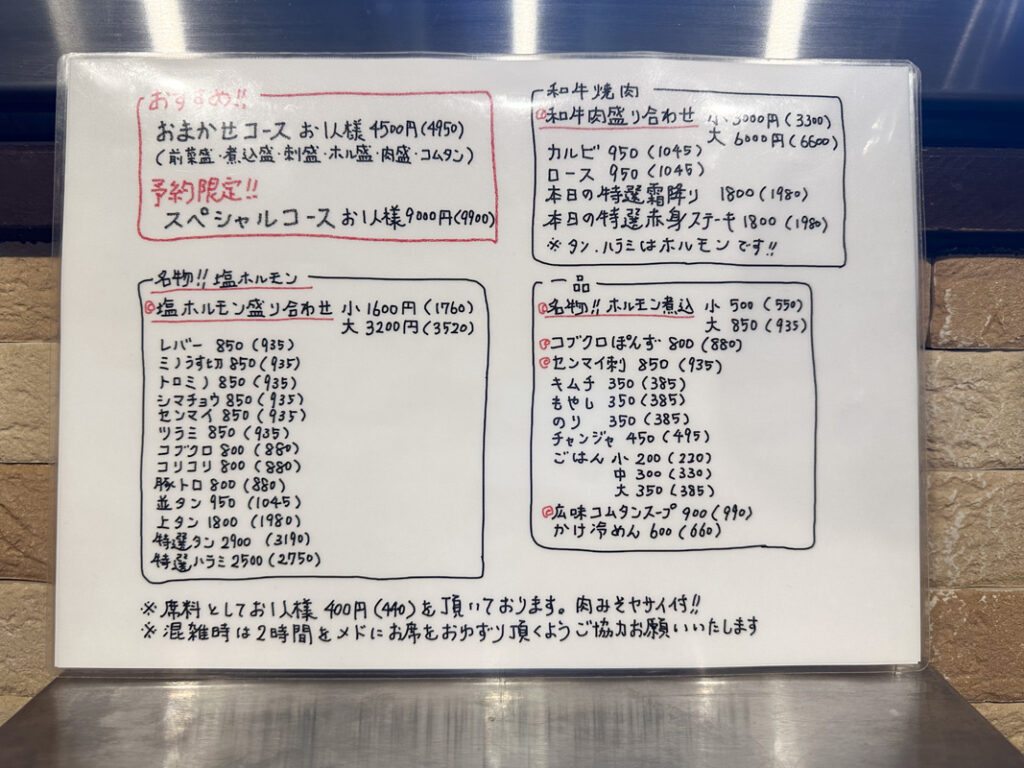 おすすめ!!
おまかせコース お1人様 4500円(4950)
(前菜盛・煮込盛・刺盛・ホル盛・肉盛・コムタン)
予約限定!!
スペシャルコース お1人様 9000円(9900)
名物!! 塩ホルモン
塩ホルモン盛り合わせ 小 1600円(1760)
大 3200円(3520)
レバー 850(935)
ミノうす切 850(935)
トロミノ 850(935)
シマチョウ 850(935)
センマイ 850(935)
ツラミ 850(935)
コブクロ 800(880)
コリコリ 800(880)
豚トロ 800(880)
並タン 950(1045)
上タン 1800(1980)
特選タン 2900(3190)
特選ハラミ 2500(2750)
和牛焼肉
和牛肉盛り合わせ 小 3000円(3300)
大 6000円(6600)
カルビ 950(1045)
ロース 950(1045)
本日の特選霜降り 1800(1980)
本日の特選赤身ステーキ 1800(1980)
※タン.ハラミはホルモンです!!
一品
名物!! ホルモン煮込 小 500(550)
大 850(935)
コブクロぽんず 800(880)
センマイ刺 850(935)
キムチ 350(385)
もやし 350(385)
のり 350(385)
チャンジャ 450(495)
ごはん 小 200(220)
中 300(330)
大 350(385)
広味コムタンスープ 900(990)
かけ冷めん 600(660)
※席料としてお1人様 400円(440)を頂いております。肉みそヤサイ付!!
※混雑時は2時間をメドにお席をおゆずり頂くようご協力お願いいたします